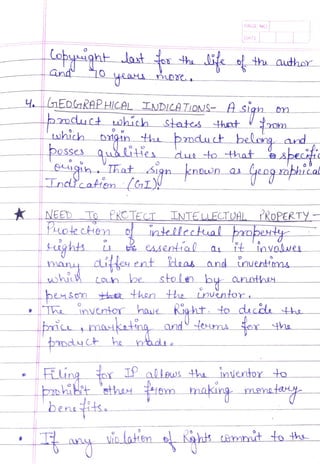 PAGE NO.
DATE
Copyright last for the life of the author
and 70 years more.
4. GEOGRAPHICAL INDICATIONS- A sign on
product which states that from
which origin the product belong and
posses qualities due to that specific
origin. That sign known as Geographical
Indication (GI).
★ NEED TO PROTECT INTELLECTUAL PROPERTY -
Protection of intellectual property
rights is essential as it involves
many different ideas and inventions
which can be stolen by another
person then the inventor.
• The inventor have Right to decide the
price, marketing and terms for the
product he made.
• Filing for IP allows the inventor to
prohibit other from making monetary
benefits.
• If any violation of Rights commit to the